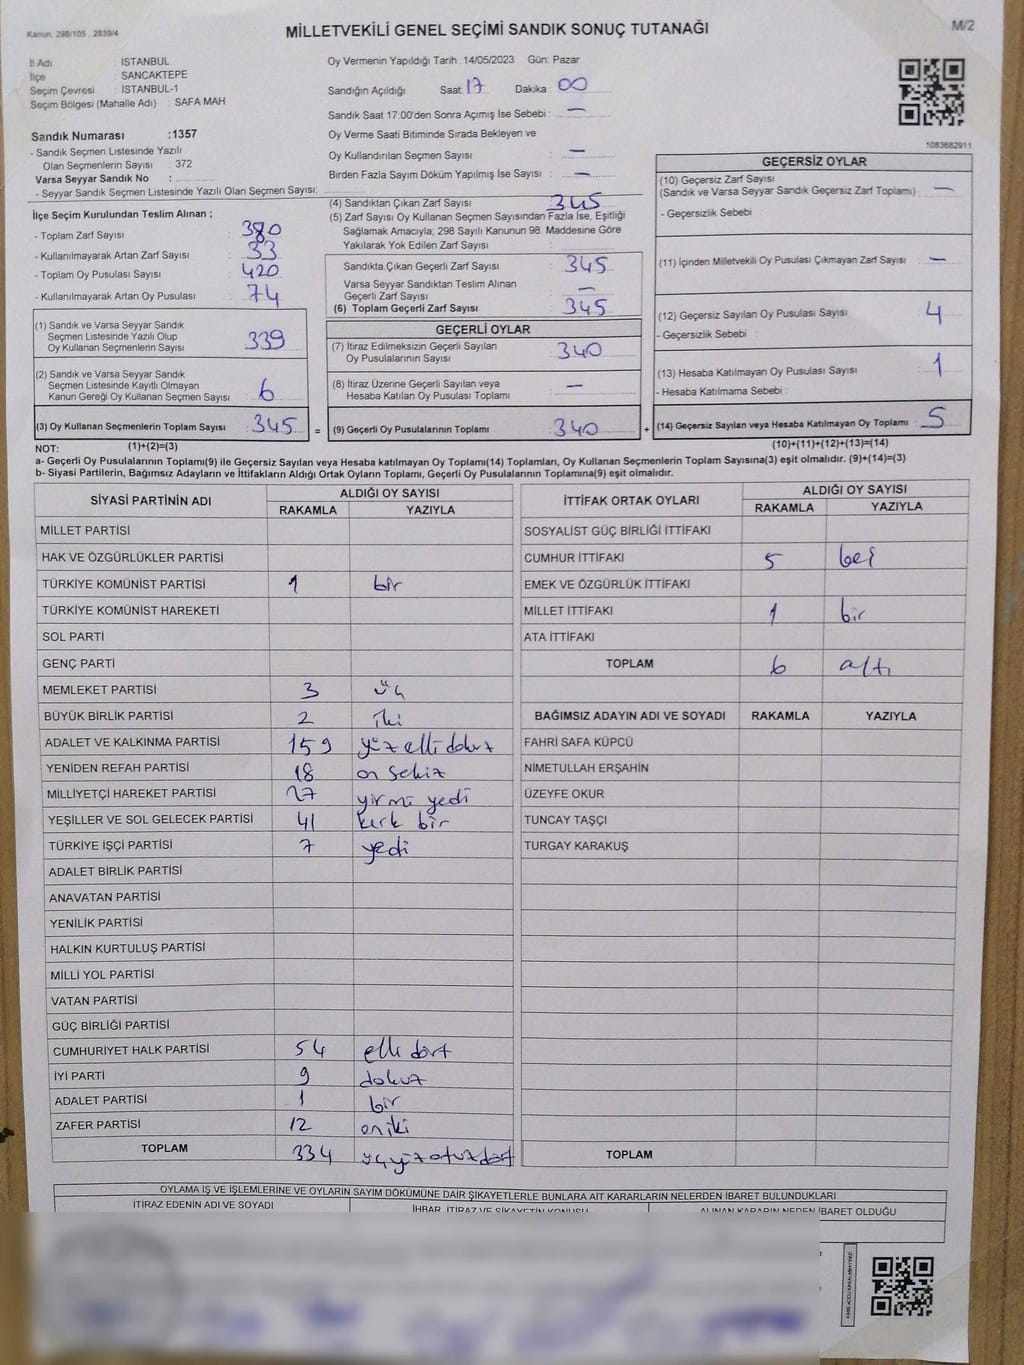 Kanun: 298/105 , 2839/4
MİLLETVEKİLİ GENEL SEÇİMİ SANDIK SONUÇ TUTANAĞI
M/2
İl Adı : İSTANBUL
İlçe : SANCAKTEPE
Seçim Çevresi : İSTANBUL-1
Seçim Bölgesi (Mahalle Adı) : SAFA MAH
Sandık Numarası :1357
- Sandık Seçmen Listesinde Yazılı
Olan Seçmenlerin Sayısı : 372
Varsa Seyyar Sandık No :
- Seyyar Sandık Seçmen Listesinde Yazılı Olan Seçmen Sayısı:
Oy Vermenin Yapıldığı Tarih :14/05/2023 Gün: Pazar
Sandığın Açıldığı Saat: 17 Dakika : 00
Sandık Saat 17:00'den Sonra Açımış İse Sebebi : —
Oy Verme Saati Bitiminde Sırada Bekleyen ve
Oy Kullandırılan Seçmen Sayısı : —
Birden Fazla Sayım Döküm Yapılmış İse Sayısı : —
1083682911
İlçe Seçim Kurulundan Teslim Alınan ;
- Toplam Zarf Sayısı : 380
- Kullanılmayarak Artan Zarf Sayısı : 33
- Toplam Oy Pusulası Sayısı : 420
- Kullanılmayarak Artan Oy Pusulası : 74
(1) Sandık ve Varsa Seyyar Sandık
Seçmen Listesinde Yazılı Olup
Oy Kullanan Seçmenlerin Sayısı : 339
(2) Sandık ve Varsa Seyyar Sandık
Seçmen Listesinde Kayıtlı Olmayan
Kanun Gereği Oy Kullanan Seçmen Sayısı : 6
(3) Oy Kullanan Seçmenlerin Toplam Sayısı : 345 =
(1)+(2)=(3)
(4) Sandıktan Çıkan Zarf Sayısı : 345
(5) Zarf Sayısı Oy Kullanan Seçmen Sayısından Fazla İse, Eşitliği
Sağlamak Amacıyla; 298 Sayılı Kanunun 98. Maddesine Göre
Yakılarak Yok Edilen Zarf Sayısı :
Sandıkta Çıkan Geçerli Zarf Sayısı : 345
Varsa Seyyar Sandıktan Teslim Alınan
Geçerli Zarf Sayısı : —
(6) Toplam Geçerli Zarf Sayısı : 345
GEÇERLİ OYLAR
(7) İtiraz Edilmeksizin Geçerli Sayılan
Oy Pusulalarının Sayısı : 340
(8) İtiraz Üzerine Geçerli Sayılan veya
Hesaba Katılan Oy Pusulası Toplamı : —
(9) Geçerli Oy Pusulalarının Toplamı : 340 +
GEÇERSİZ OYLAR
(10) Geçersiz Zarf Sayısı
(Sandık ve Varsa Seyyar Sandık Geçersiz Zarf Toplamı) : —
- Geçersizlik Sebebi :
(11) İçinden Milletvekili Oy Pusulası Çıkmayan Zarf Sayısı : —
(12) Geçersiz Sayılan Oy Pusulası Sayısı : 4
- Geçersizlik Sebebi :
(13) Hesaba Katılmayan Oy Pusulası Sayısı : 1
- Hesaba Katılmama Sebebi :
(14) Geçersiz Sayılan veya Hesaba Katılmayan Oy Toplamı : 5
(10)+(11)+(12)+(13)=(14)
NOT:
a- Geçerli Oy Pusulalarının Toplamı(9) ile Geçersiz Sayılan veya Hesaba katılmayan Oy Toplamı(14) Toplamları, Oy Kullanan Seçmenlerin Toplam Sayısına(3) eşit olmalıdır. (9)+(14)=(3)
b- Siyasi Partilerin, Bağımsız Adayların ve İttifakların Aldığı Ortak Oyların Toplamı, Geçerli Oy Pusulalarının Toplamına(9) eşit olmalıdır.
SİYASİ PARTİNİN ADI ALDIĞI OY SAYISI
RAKAMLA YAZIYLA
MİLLET PARTİSİ
HAK VE ÖZGÜRLÜKLER PARTİSİ
TÜRKİYE KOMÜNİST PARTİSİ 1 bir
TÜRKİYE KOMÜNİST HAREKETİ
SOL PARTİ
GENÇ PARTİ
MEMLEKET PARTİSİ 3 üç
BÜYÜK BİRLİK PARTİSİ 2 iki
ADALET VE KALKINMA PARTİSİ 159 yüz elli dokuz
YENİDEN REFAH PARTİSİ 18 on sekiz
MİLLİYETÇİ HAREKET PARTİSİ 27 yirmi yedi
YEŞİLLER VE SOL GELECEK PARTİSİ 41 kırk bir
TÜRKİYE İŞÇİ PARTİSİ 7 yedi
ADALET BİRLİK PARTİSİ
ANAVATAN PARTİSİ
YENİLİK PARTİSİ
HALKIN KURTULUŞ PARTİSİ
MİLLİ YOL PARTİSİ
VATAN PARTİSİ
GÜÇ BİRLİĞİ PARTİSİ
CUMHURİYET HALK PARTİSİ 54 elli dört
İYİ PARTİ 9 dokuz
ADALET PARTİSİ 1 bir
ZAFER PARTİSİ 12 oniki
TOPLAM 334 üçyüzotuzdört
İTTİFAK ORTAK OYLARI ALDIĞI OY SAYISI
RAKAMLA YAZIYLA
SOSYALİST GÜÇ BİRLİĞİ İTTİFAKI
CUMHUR İTTİFAKI 5 beş
EMEK VE ÖZGÜRLÜK İTTİFAKI
MİLLET İTTİFAKI 1 bir
ATA İTTİFAKI
TOPLAM 6 altı
BAĞIMSIZ ADAYIN ADI VE SOYADI RAKAMLA YAZIYLA
FAHRİ SAFA KÜPCÜ
NİMETULLAH ERŞAHİN
ÜZEYFE OKUR
TUNCAY TAŞÇI
TURGAY KARAKUŞ
TOPLAM
OYLAMA İŞ VE İŞLEMLERİNE VE OYLARIN SAYIM DÖKÜMÜNE DAİR ŞİKAYETLERLE BUNLARA AİT KARARLARIN NELERDEN İBARET BULUNDUKLARI
İTİRAZ EDENİN ADI VE SOYADI İHBAR, İTİRAZ VE ŞİKAYETİN KONUSU ALINAN KARARIN NEDEN İBARET OLDUĞU